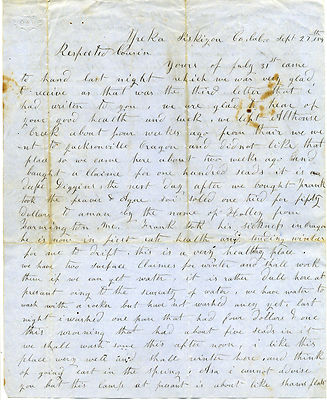 Yreka Siskiyou Co. Cala. Sept 27th
Respected Cousin
Yours of July 31st came
to hand last night which we was very glad
to receive as that was the third letter that i
had writen to you, we are glad to hear of
your good health and luck, we left Althouse
Creek about four weeks ago from thair we we
nt to Jacksonville Oregon and did not like that
place so we came here about two weeks ago and
bought a claime for one hundred
deepe Diggins the next day after we bought Frank
took the feavor & Ague son soled one third for fifty
Dollars to a man by the name of Holley from
Farmington Me. Frank took his sickness on Oregon
he is now in first rate health and
for me to drift, this is a very healthy place
we have two surface claimes for winter and shall work
them if we can get water it is rather dull here at
presant owing to the scearcity of water, we have water to
wash with a rocker but have not washed aney yet, last
night i washed one pan that had four dollars & one
this morning that had about five
we shall wash some this after noon, i like this
place very well and shall winter here, and think
of going east in the spring, Asa i cannot advise
you but this camp at presant is about like